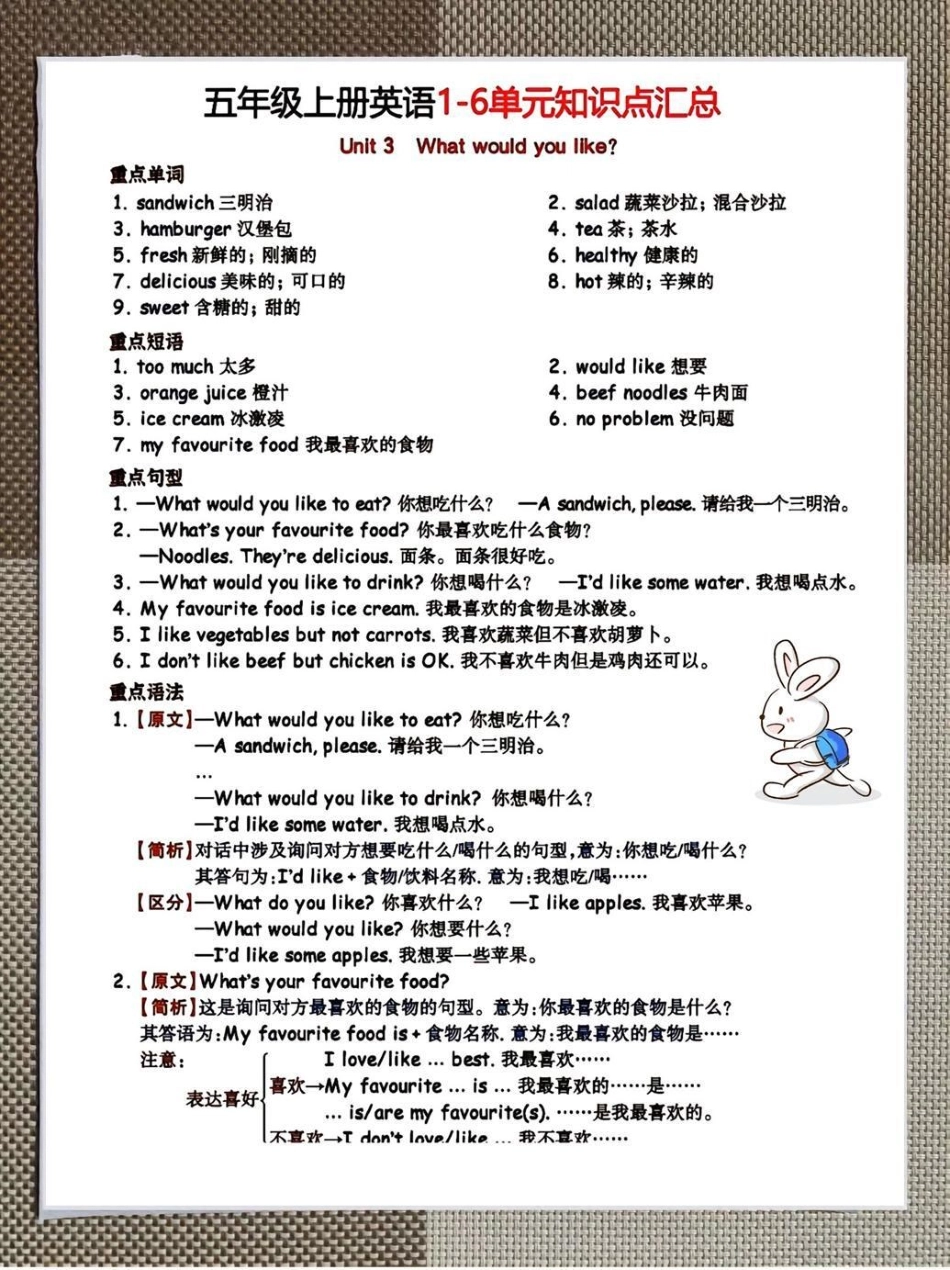 五年级上册英语1-6单元知识点汇总
Unit 3 What would you like?
重点单词
1. sandwich 三明治 2. salad 蔬菜沙拉；混合沙拉
3. hamburger 汉堡包 4. tea 茶；茶水
5. fresh 新鲜的；刚摘的 6. healthy 健康的
7. delicious 美味的；可口的 8. hot 辣的；辛辣的
9. sweet 含糖的；甜的
重点短语
1. too much 太多 2. would like 想要
3. orange juice 橙汁 4. beef noodles 牛肉面
5. ice cream 冰激凌 6. no problem 没问题
7. my favourite food 我最喜欢的食物
重点句型
1. —What would you like to eat? 你想吃什么？ —A sandwich, please. 请给我一个三明治。
2. —What's your favourite food? 你最喜欢吃什么食物？
—Noodles. They're delicious. 面条。面条很好吃。
3. —What would you like to drink? 你想喝什么？ —I'd like some water. 我想喝点水。
4. My favourite food is ice cream. 我最喜欢的食物是冰激凌。
5. I like vegetables but not carrots. 我喜欢蔬菜但不喜欢胡萝卜。
6. I don't like beef but chicken is OK. 我不喜欢牛肉但是鸡肉还可以。
重点语法
1.【原文】—What would you like to eat? 你想吃什么？
—A sandwich, please. 请给我一个三明治。
…
—What would you like to drink? 你想喝什么？
—I'd like some water. 我想喝点水。
【简析】对话中涉及询问对方想要吃什么/喝什么的句型，意为：你想吃/喝什么？
其答句为：I'd like + 食物/饮料名称. 意为：我想吃/喝……
【区分】—What do you like? 你喜欢什么？ —I like apples. 我喜欢苹果。
—What would you like? 你想要什么？
—I'd like some apples. 我想要一些苹果。
2.【原文】What's your favourite food?
【简析】这是询问对方最喜欢的食物的句型。意为：你最喜欢的食物是什么？
其答语为：My favourite food is + 食物名称. 意为：我最喜欢的食物是……
注意：
I love/like … best. 我最喜欢……
表达喜好 喜欢→My favourite … is … 我最喜欢的……是……
… is/are my favourite(s). ……是我最喜欢的。
不喜欢→I don't love/like … 我不喜欢……